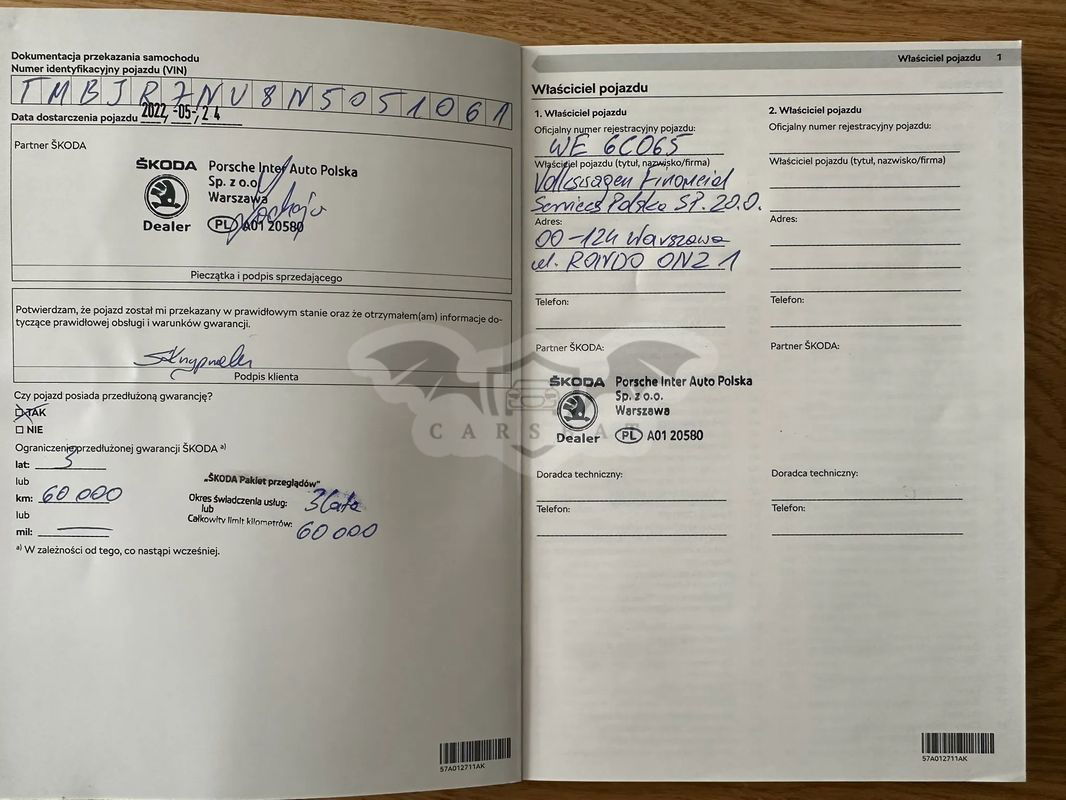 Dokumentacja przekazania samochodu
Numer identyfikacyjny pojazdu (VIN)
TMBJR7NU8N5051061
Data dostarczenia pojazdu 2022, -05- 24
Partner ŠKODA
ŠKODA
Dealer
Porsche Inter Auto Polska
Sp. z o.o.
Warszawa
PL A01 20580
Pieczątka i podpis sprzedającego
Potwierdzam, że pojazd został mi przekazany w prawidłowym stanie oraz że otrzymałem(am) informacje do-
tyczące prawidłowej obsługi i warunków gwarancji.
Podpis klienta
Czy pojazd posiada przedłużoną gwarancję?
TAK
NIE
Ograniczenie przedłużonej gwarancji ŠKODA a)
lat: 3
lub
km: 60 000
lub
mil:
a) W zależności od tego, co nastąpi wcześniej.
„ŠKODA Pakiet przeglądów"
Okres świadczenia usług: 3 lata
lub
Całkowity limit kilometrów: 60 000
57A012711AK
Właściciel pojazdu 1
Właściciel pojazdu
1. Właściciel pojazdu
Oficjalny numer rejestracyjny pojazdu:
WE 6C065
Właściciel pojazdu (tytuł, nazwisko/firma)
Volkswagen Financial
Services Polska SP. Z O.O.
Adres:
00-124 Warszawa
ul. RONDO ONZ 1
Telefon:
Partner ŠKODA:
ŠKODA
Dealer
Porsche Inter Auto Polska
Sp. z o.o.
Warszawa
PL A01 20580
Doradca techniczny:
Telefon:
2. Właściciel pojazdu
Oficjalny numer rejestracyjny pojazdu:
Właściciel pojazdu (tytuł, nazwisko/firma)
Adres:
Telefon:
Partner ŠKODA:
Doradca techniczny:
Telefon:
57A012711AK